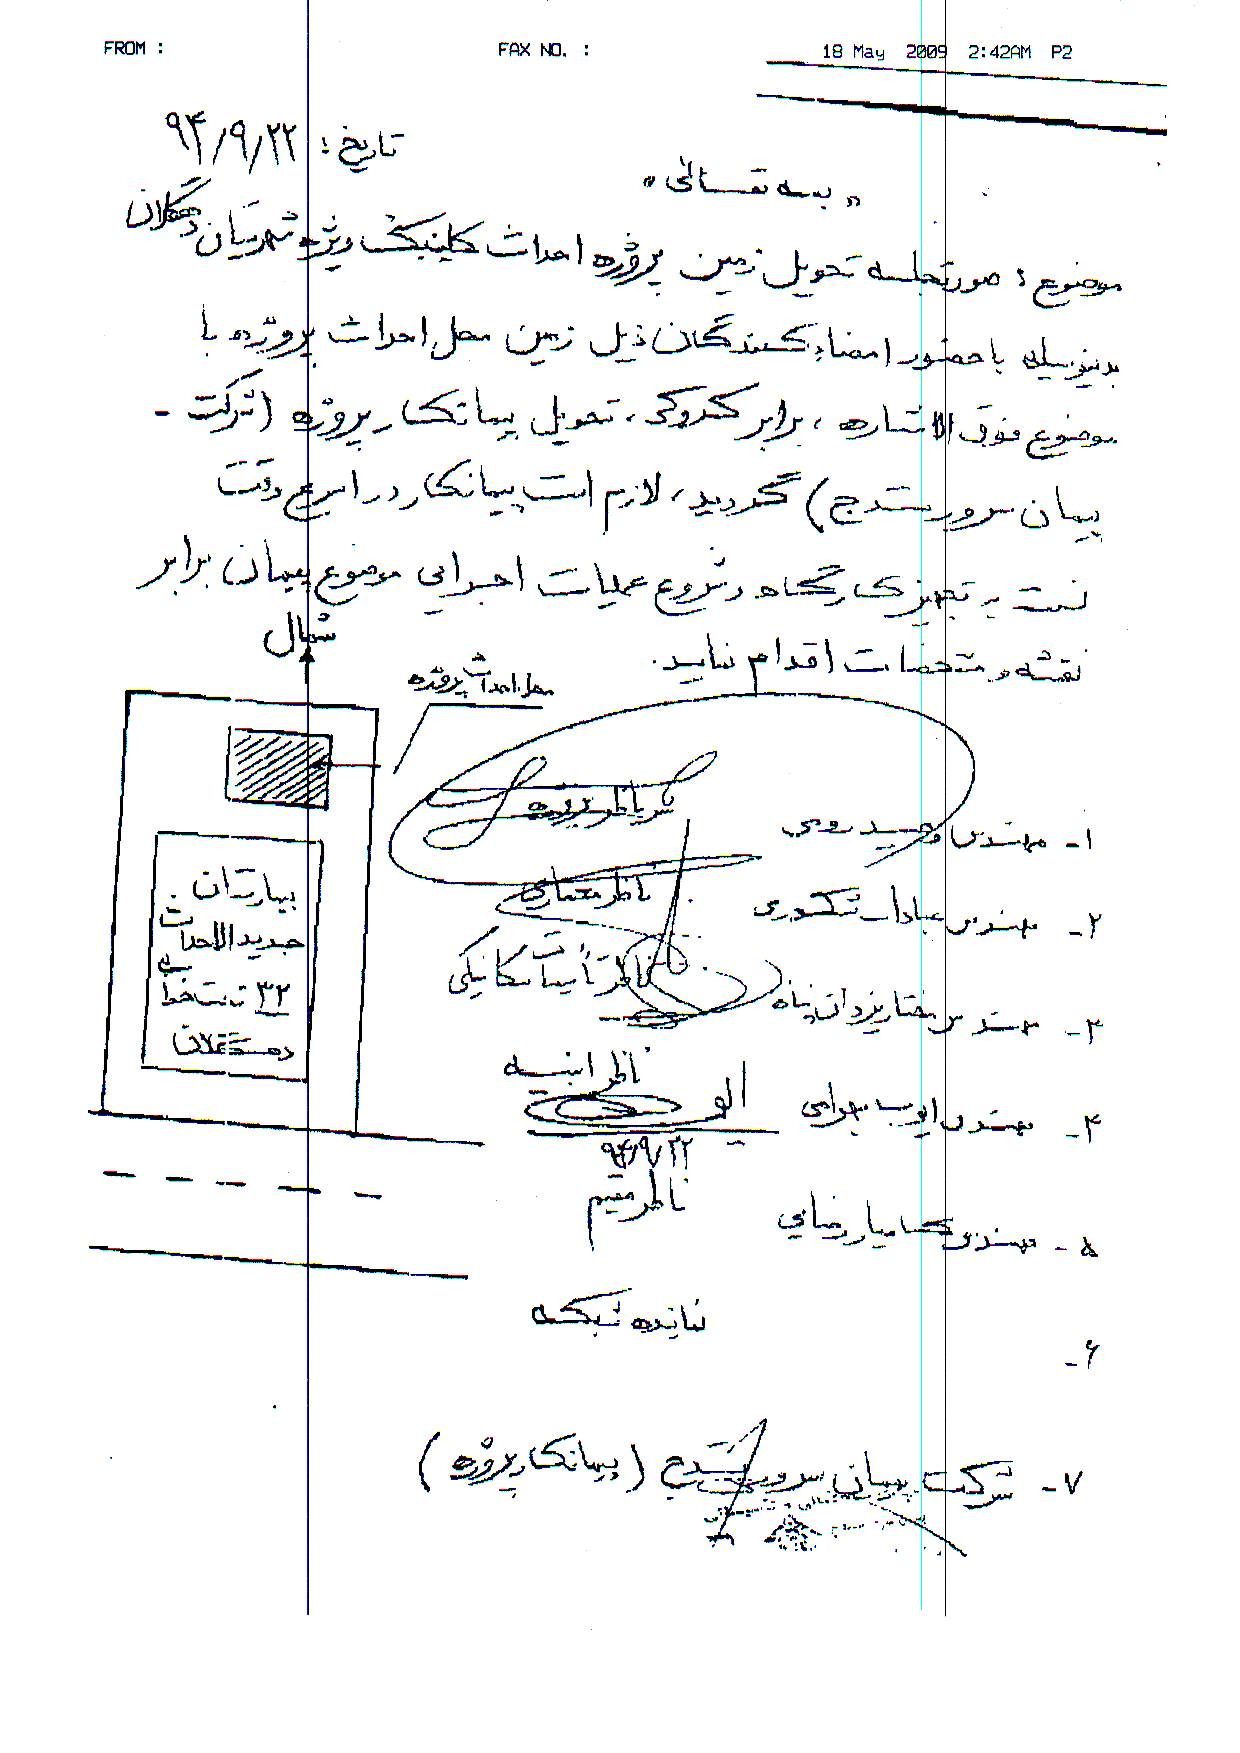 FROM : FAX NO. : 18 May 2009 2:42AM P2
تاریخ: ۹۴/۹/۲۲
"بسمه تعالی"
موضوع: صورتجلسه تحویل زمین پروژه احداث کلینیک ویژه شهرستان دهگلان
بدینوسیله با حضور امضاء کنندگان ذیل زمین محل احداث پروژه با
موضوع فوق الاشاره، برابر کروکی، تحویل پیمانکار پروژه (شرکت -
پیمان سرور سنندج) گردید، لازم است پیمانکار در اسرع وقت
نسبت به تجهیز کارگاه و شروع عملیات اجرایی موضوع پیمان برابر
نقشه و مشخصات اقدام نماید.
شمال
محل احداث پروژه
بیمارستان
جدیدالاحداث
۳۲ تختخوابی
دهگلان
۱- مهندس وحید رومی سرناظر پروژه
۲- مهندس عبادا... شکوری ناظر معماری
۳- مهندس مختار یزدان پناه ناظر تأسیسات مکانیکی
۴- مهندس ایوب بهرامی ناظر ابنیه
ایوب
۹۴/۹/۲۲
۵- مهندس کامیار رضایی ناظر مقیم
۶- نماینده شبکه
۷- شرکت پیمان سرور سنندج (پیمانکار پروژه)